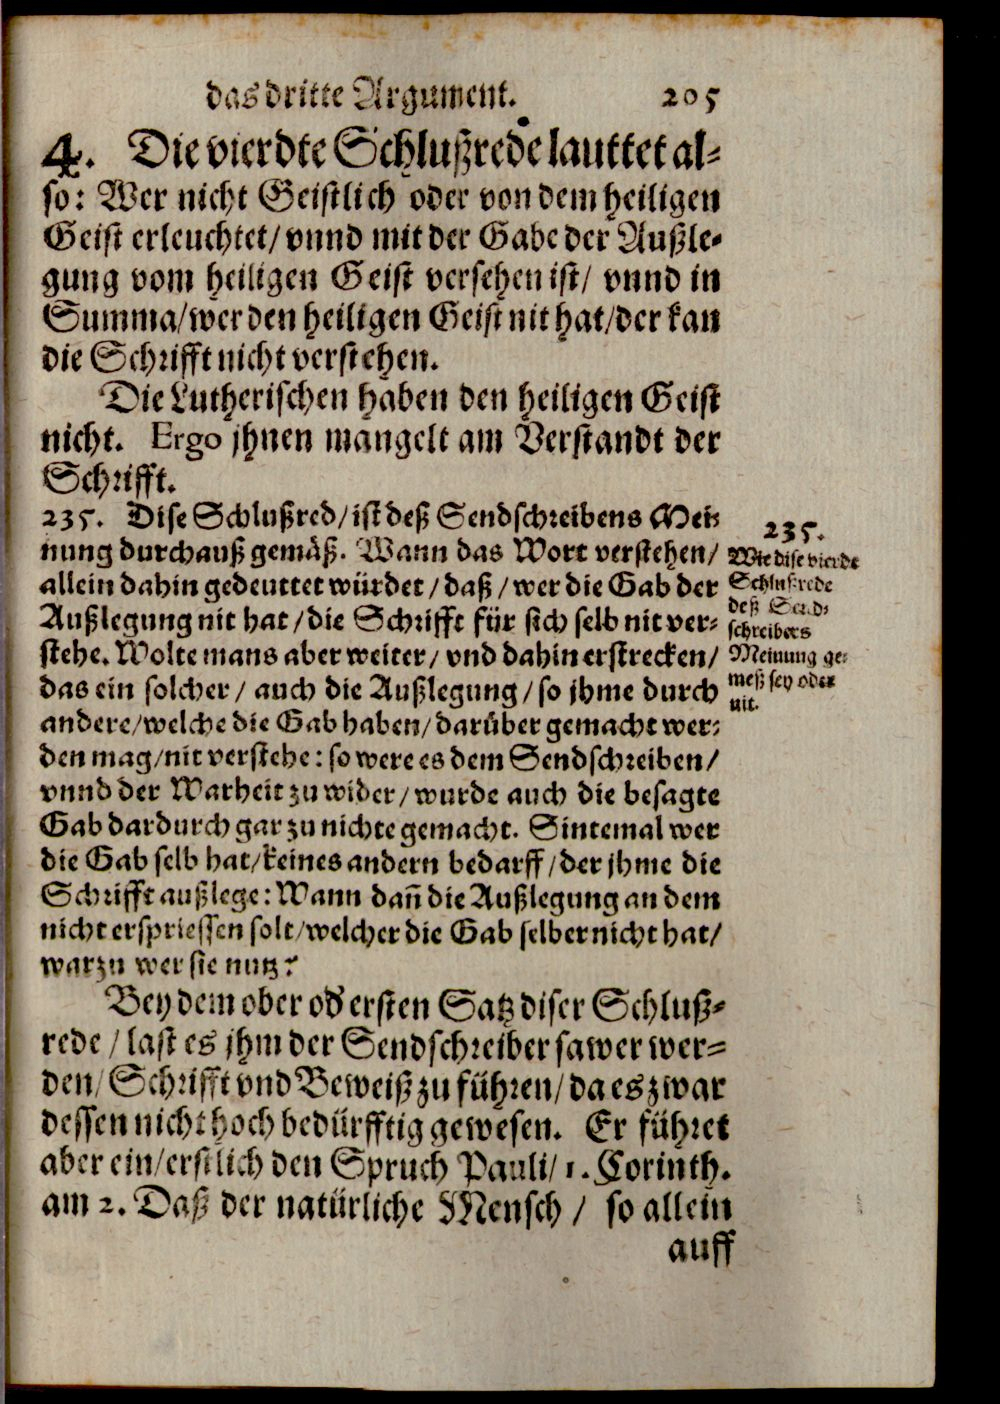 das dritte Argument. 205
4. Die vierdte Schlußrede lauttet al-
so: Wer nicht Geistlich oder von dem heiligen
Geist erleuchtet/ vnnd mit der Gabe der Außle-
gung vom heiligen Geist versehen ist/ vnnd in
Summa/wer den heiligen Geist nit hat/der kan
die Schrifft nicht verstehen.
Die Lutherischen haben den heiligen Geist
nicht. Ergo jhnen mangelt am Verstandt der
Schrifft.
235. Dise Schlußred/ist deß Sendschreibens Mei-
nung durchauß gemäß. Wann das Wort verstehen/
allein dahin gedeuttet würdet/daß/wer die Gab der
Außlegung nit hat/die Schrifft für sich selb nit ver-
stehe. Wolte mans aber weiter/ vnd dahin erstrecken/
das ein solcher/ auch die Außlegung/so jhme durch
andere/welche die Gab haben/darüber gemacht wer-
den mag/nit verstehe: so were es dem Sendschreiben/
vnnd der Warheit zu wider/wurde auch die besagte
Gab dardurch gar zu nichte gemacht. Sintemal wer
die Gab selb hat/keines andern bedarff/der jhme die
Schrifft außlege: Wann dañ die Außlegung an dem
nicht erspriessen solt/welcher die Gab selber nicht hat/
warzu wer sie nutz?
235.
Wie dise vierde
Schlußrede
deß Send-
schreibers
Meinung ge-
meß sey oder
nit.
Bey dem ober od' ersten Satz diser Schluß-
rede / last es jhm der Sendschreiber sawer wer-
den/ Schrifft vnd Beweiß zu führen/ da es zwar
dessen nicht hoch bedürfftig gewesen. Er führet
aber ein/erstlich den Spruch Pauli/ 1. Corinth.
am 2. Daß der natürliche Mensch / so allein
auff